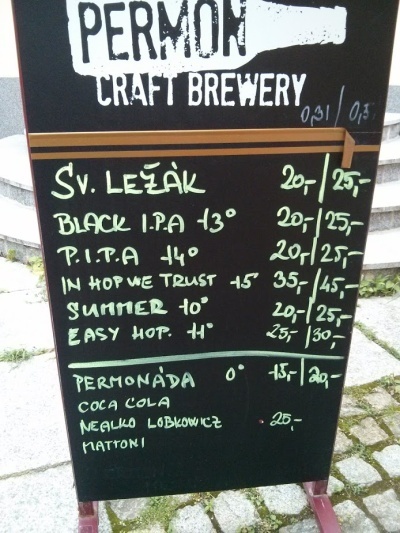 PERMON
CRAFT BREWERY
0,3l / 0,5
SV. LEŽÁK 20,- | 25,-
BLACK I.P.A 13° 20,- | 25,-
P.I.P.A 14° 20,- | 25,-
IN HOP WE TRUST 15° 35,- | 45,-
SUMMER 10° 20,- | 25,-
EASY HOP. 11° 25,- | 30,-
PERMONÁDA 0° 15,- | 20,-
COCA COLA
NEALKO LOBKOWICZ 25,-
MATTONI